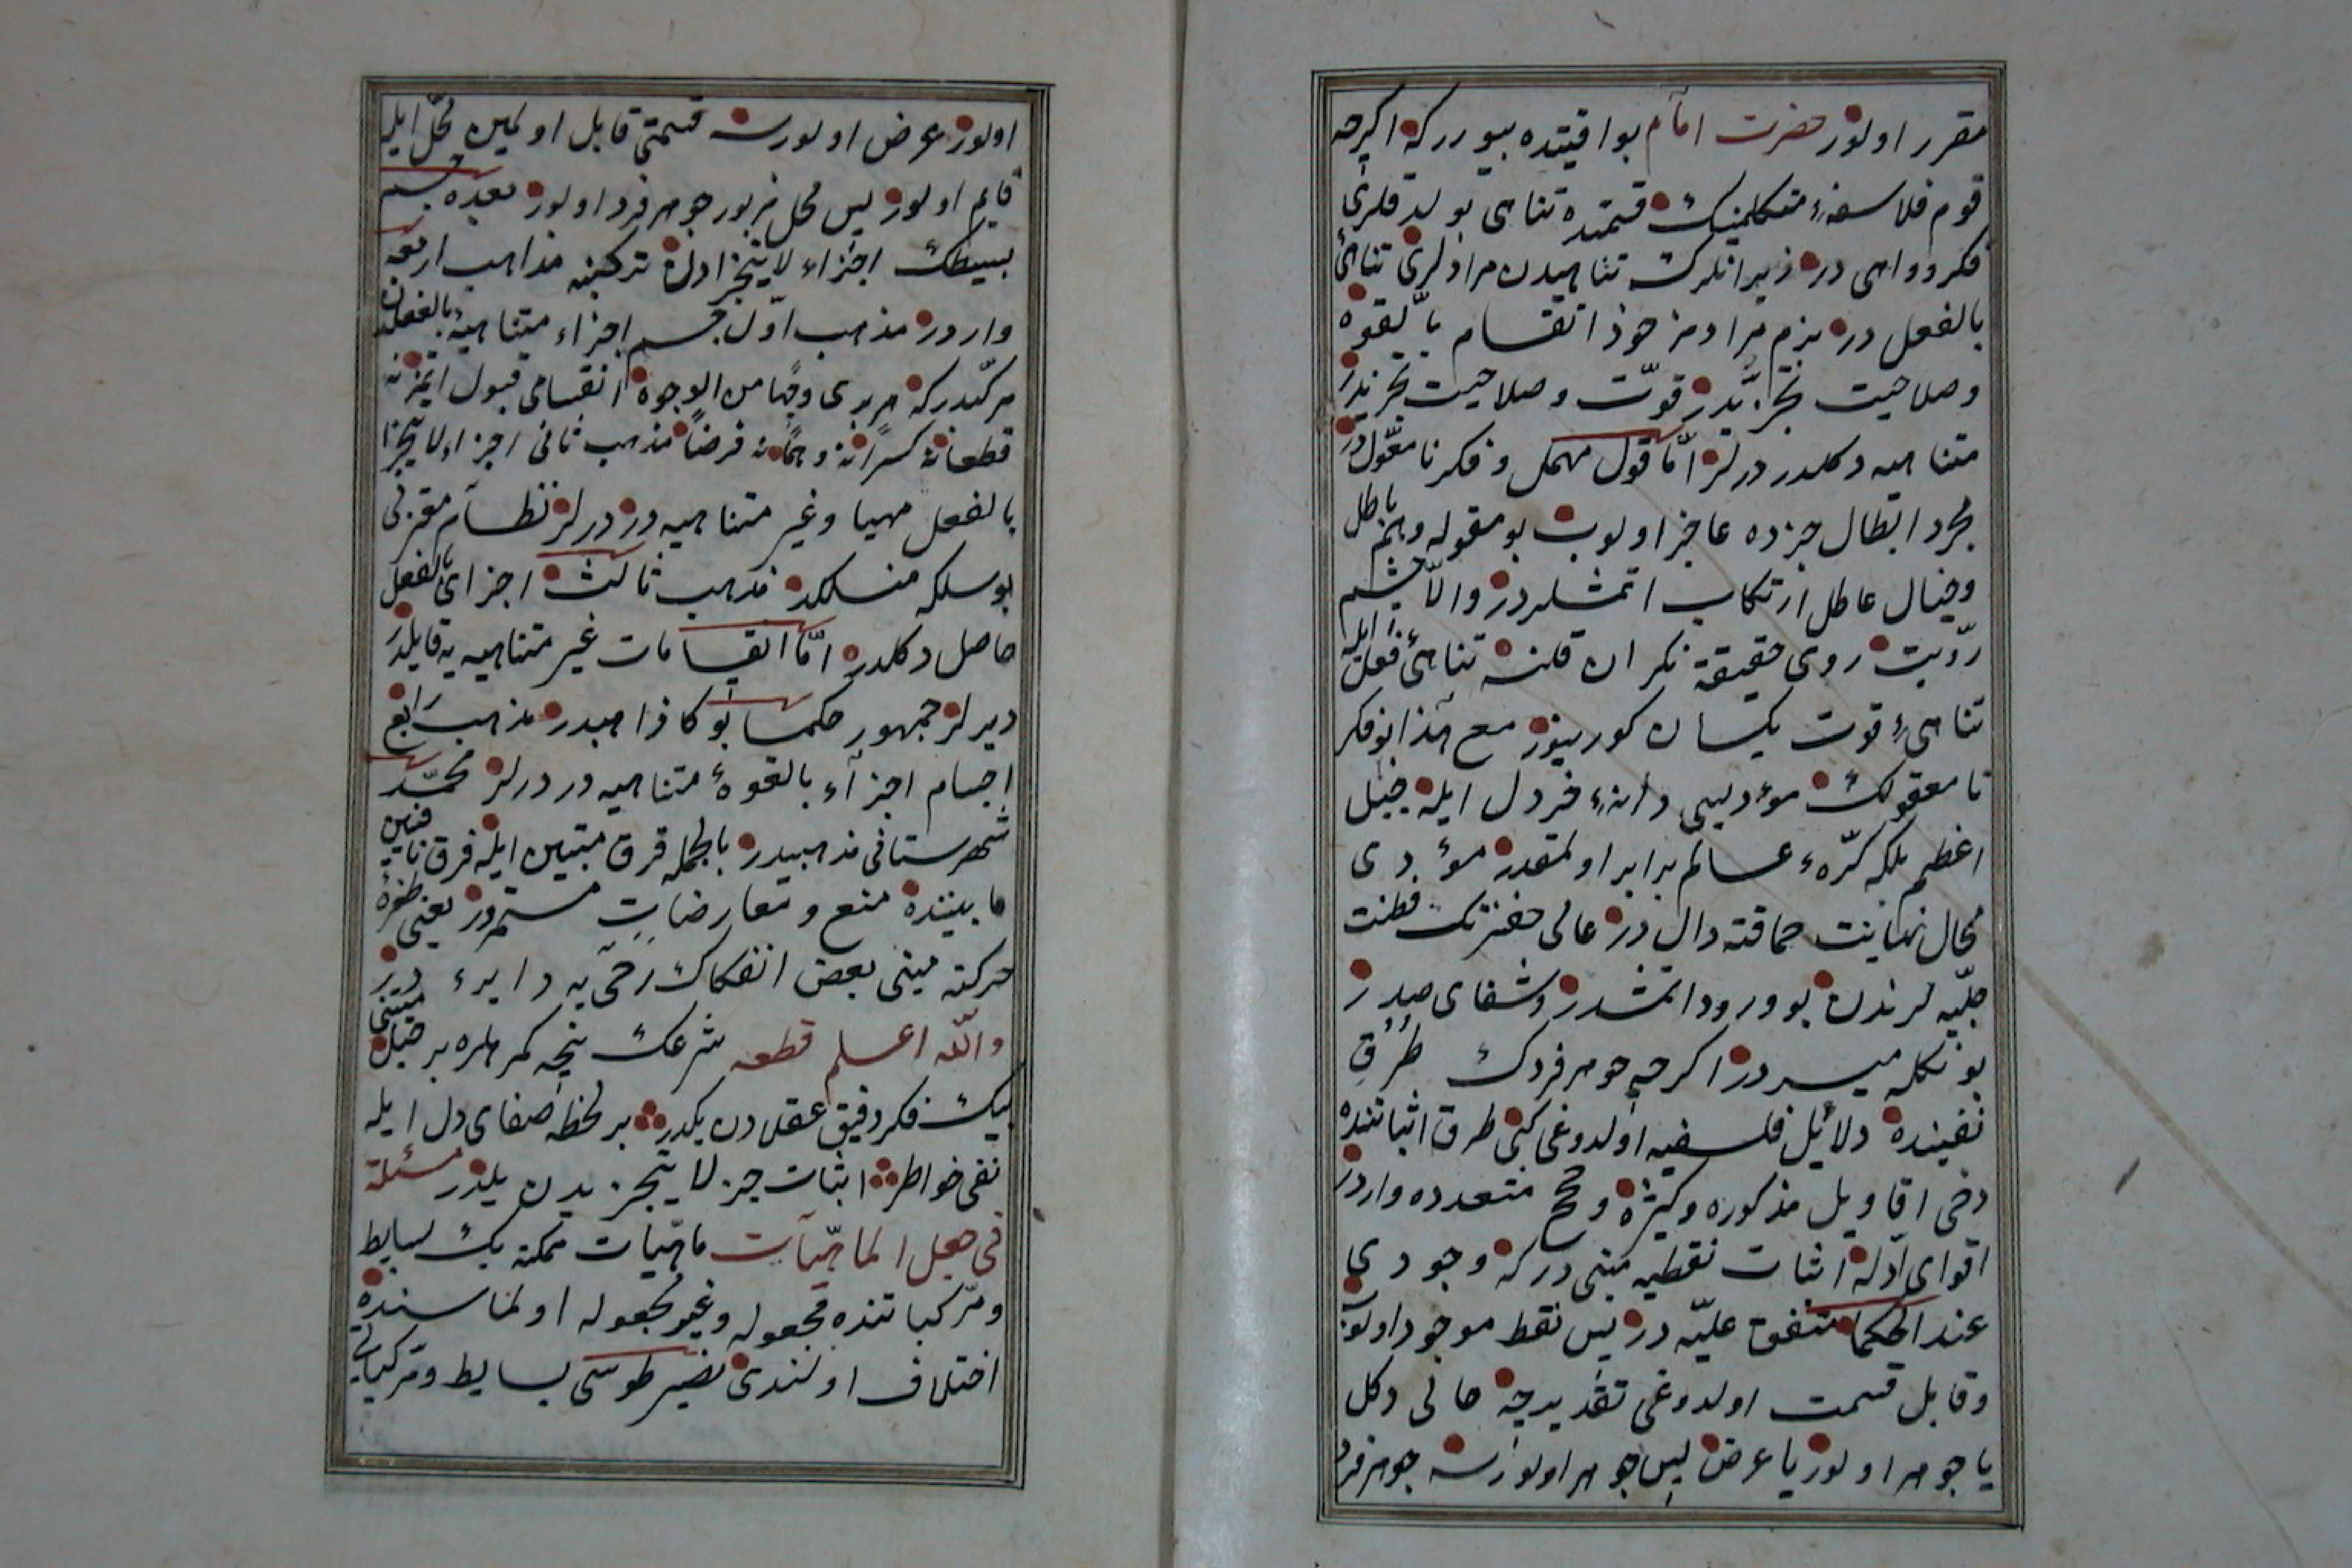 مقرر اولور حضرت امام بو اقیتده بیوررکه اکرچه
قوم فلاسفهٔ متکلمینک قسمتده تناهی بولدقلری
فکر وواهی در زیرا انلرک تناهیدن مرادلری تناهئ
بالفعل در بزم مرادمز هوذا انقسام بالقوه
وصلاحیت تجزیدر قوت وصلاحیت تجزیدر
متناهیه دکلدر درلر امّا قول مهمل وفکر نامعقولدر
مجرد ابطال جزده عاجز اولوب بو مقوله وهم باطل
وخیال عاطل ارتکاب اتمشلردر والّا چشم
رؤیت روی حقیقته نکران قلنه تناهئ فعل ایله
تناهیٔ قوت یکسان کورینور مع هذا بو فکر
نامعقولک مؤدیسی دانهٔ خردل ایله جبل
اعظم بلکه کرّهٔ عالم برابر اولمقدر مؤدی
محال نهایت حماقته دال در عالی حضرتک فطنت
جلیّه لرندن بو ورود اتمشدر وشفای صدر
بونکله میسردر اکرچه جوهر فردک طرق
نفینده دلائل فلسفیه اولدوغی کبی طرق اثباتنده
دخی اقاویل مذکوره وکثیره وحجج متعدده واردر
اقوای ادله اثبات نقطیه مبنی درکه وجودی
عند الحکما متفق علیه در پس نقط موجود اولوب
وقابل قسمت اولدوغی تقدیرجه خالی دکل
یا جوهر اولور یا عرض پس جوهر اولورسه جوهر فرد
اولور عرض اولورسه قسمتی قابل اولمین محل ایله
قایم اولور پس محل مزبور جوهر فرد اولور بعده جسم
بسیطک اجزاء لایتجزادن ترکیبنه مذاهب اربعه
واردر مذهب اوّل جسم اجزاء متناهیهٔ بالفعلدن
مرکّبدرکه هر بری وجهًا من الوجوه انقسامی قبول ایتمز نه
قطعا نه کسرًا نه وهمًا نه فرضًا مذهب ثانی اجزاء لایتجزا
بالفعل مهیا وغیر متناهیه در درلر نظام معتزلی
بو سلکه منسلکدر مذهب ثالث اجزای بالفعل
حاصل دکلدر امّا انقسامات غیر متناهیه یه قابلدر
دیرلر جمهور حکما بوکا ذاهبدر مذهب رابع
اجسام اجزاء بالقوهٔ متناهیه در درلر محمّد
شهرستانی مذهبیدر بالجمله فرق مثبتین ایله فرق نافیین
مابیننده منع ومعارضات مستمردر یعنی طفرهٔ
حرکته مبنی بعض انفکاک رحی یه دایره در
والله اعلم قطعه شرعک نیجه کمرهلره بر حبل متینی
لیک فکر دقیق عقلدن یکدر بر لحظه صفای دل ایله
نفی خواطر اثبات جزء لایتجزیدن یکدر مسئلة
فی جعل الماهیّات ماهیّات ممکنه نک بسایط
ومرکباتنده مجعوله وغیر مجعوله اولماسنده
اختلاف اولندی نصیر طوسی بسایط ومرکباتی